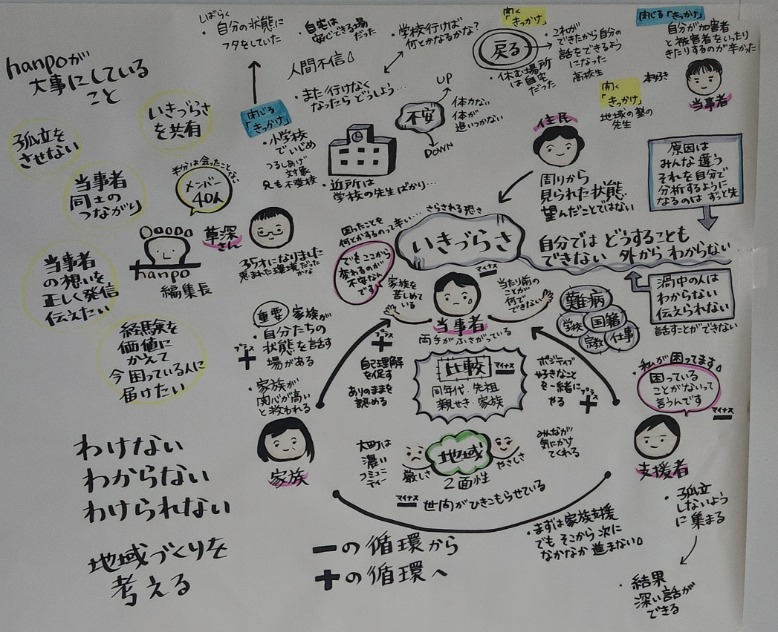 hanpoが
大事にしている
こと
孤立を
させない
いきづらさ
を共有
当事者
同士の
つながり
当事者
の想いを
正しく発信
伝えたい
経験を
価値に
かえて
今困っている人に
届けたい
わけない
わからない
わけられない
地域づくりを
考える
しばらく
・自分の状態に
フタをしていた
閉じる
「きっかけ」
・小学校
でいじめ
つるしあげ
対象
兄も不登校
・自宅は
安心できる場
だった
人間不信
・また行けなく
なったらどうしよう…
・学校行けば
何とかなるかな?
・近所は
学校の先生ばかり…
UP
不安
DOWN
体力がない
体が
追いつかない
開く
「きっかけ」
戻る
・これが
できたから自分の
話をできるよう
になった
高校生
・休む場所
は自宅
だった
開く
「きっかけ」
地域の塾の
先生
閉じる「きっかけ」
自分が加害者
と被害者をいったり
きたりするのが辛かった
本好き
当事者
メンバー
40人
hanpo
編集長
草深
さん
35才になりました
恵まれた環境だった
住民
周りから
見られた状態
望んだことではない
原因は
みんな違う
それを自分で
分析するように
なるのはずっと先
困ったことを
何とかするのって辛い…
さらされる恐さ
いきづらさ
自分ではどうすることも
できない 外からわからない
でもここから
変わるのが
不安なん
です
家族を
苦しめて
いる
マイナス
当たり前の
ことが
何で
できない
当事者
両手がふさがっている
難病
学校
国籍
宗教
仕事
渦中の人は
わからない
伝えられない
話すことができない
重要
家族が
自分たちの
状態を話す
場がある
プラス
+
・家族が
関心が高い
と救われる
プラス
+
自己理解
を促す
ありのままを
認める
比較
マイナス
同年代・先祖
親せき・家族
ポジティブ
好きなこと
を一緒に
やる
プラス
+
・私が困ってます
困っている
ことがないって
言うんです
マイナス
家族
大町は
濃い
コミュニ
ティー
厳しさ
地域
2面性
やさしさ
みんなが
気にかけ
てくれる
マイナス
世間がひきこもらせている
支援者
・孤立
しないよう
に集まる
・結果
深い話が
できる
・まずは家族支援
でもそこから次に
なかなか進まない
-の循環から
+の循環へ